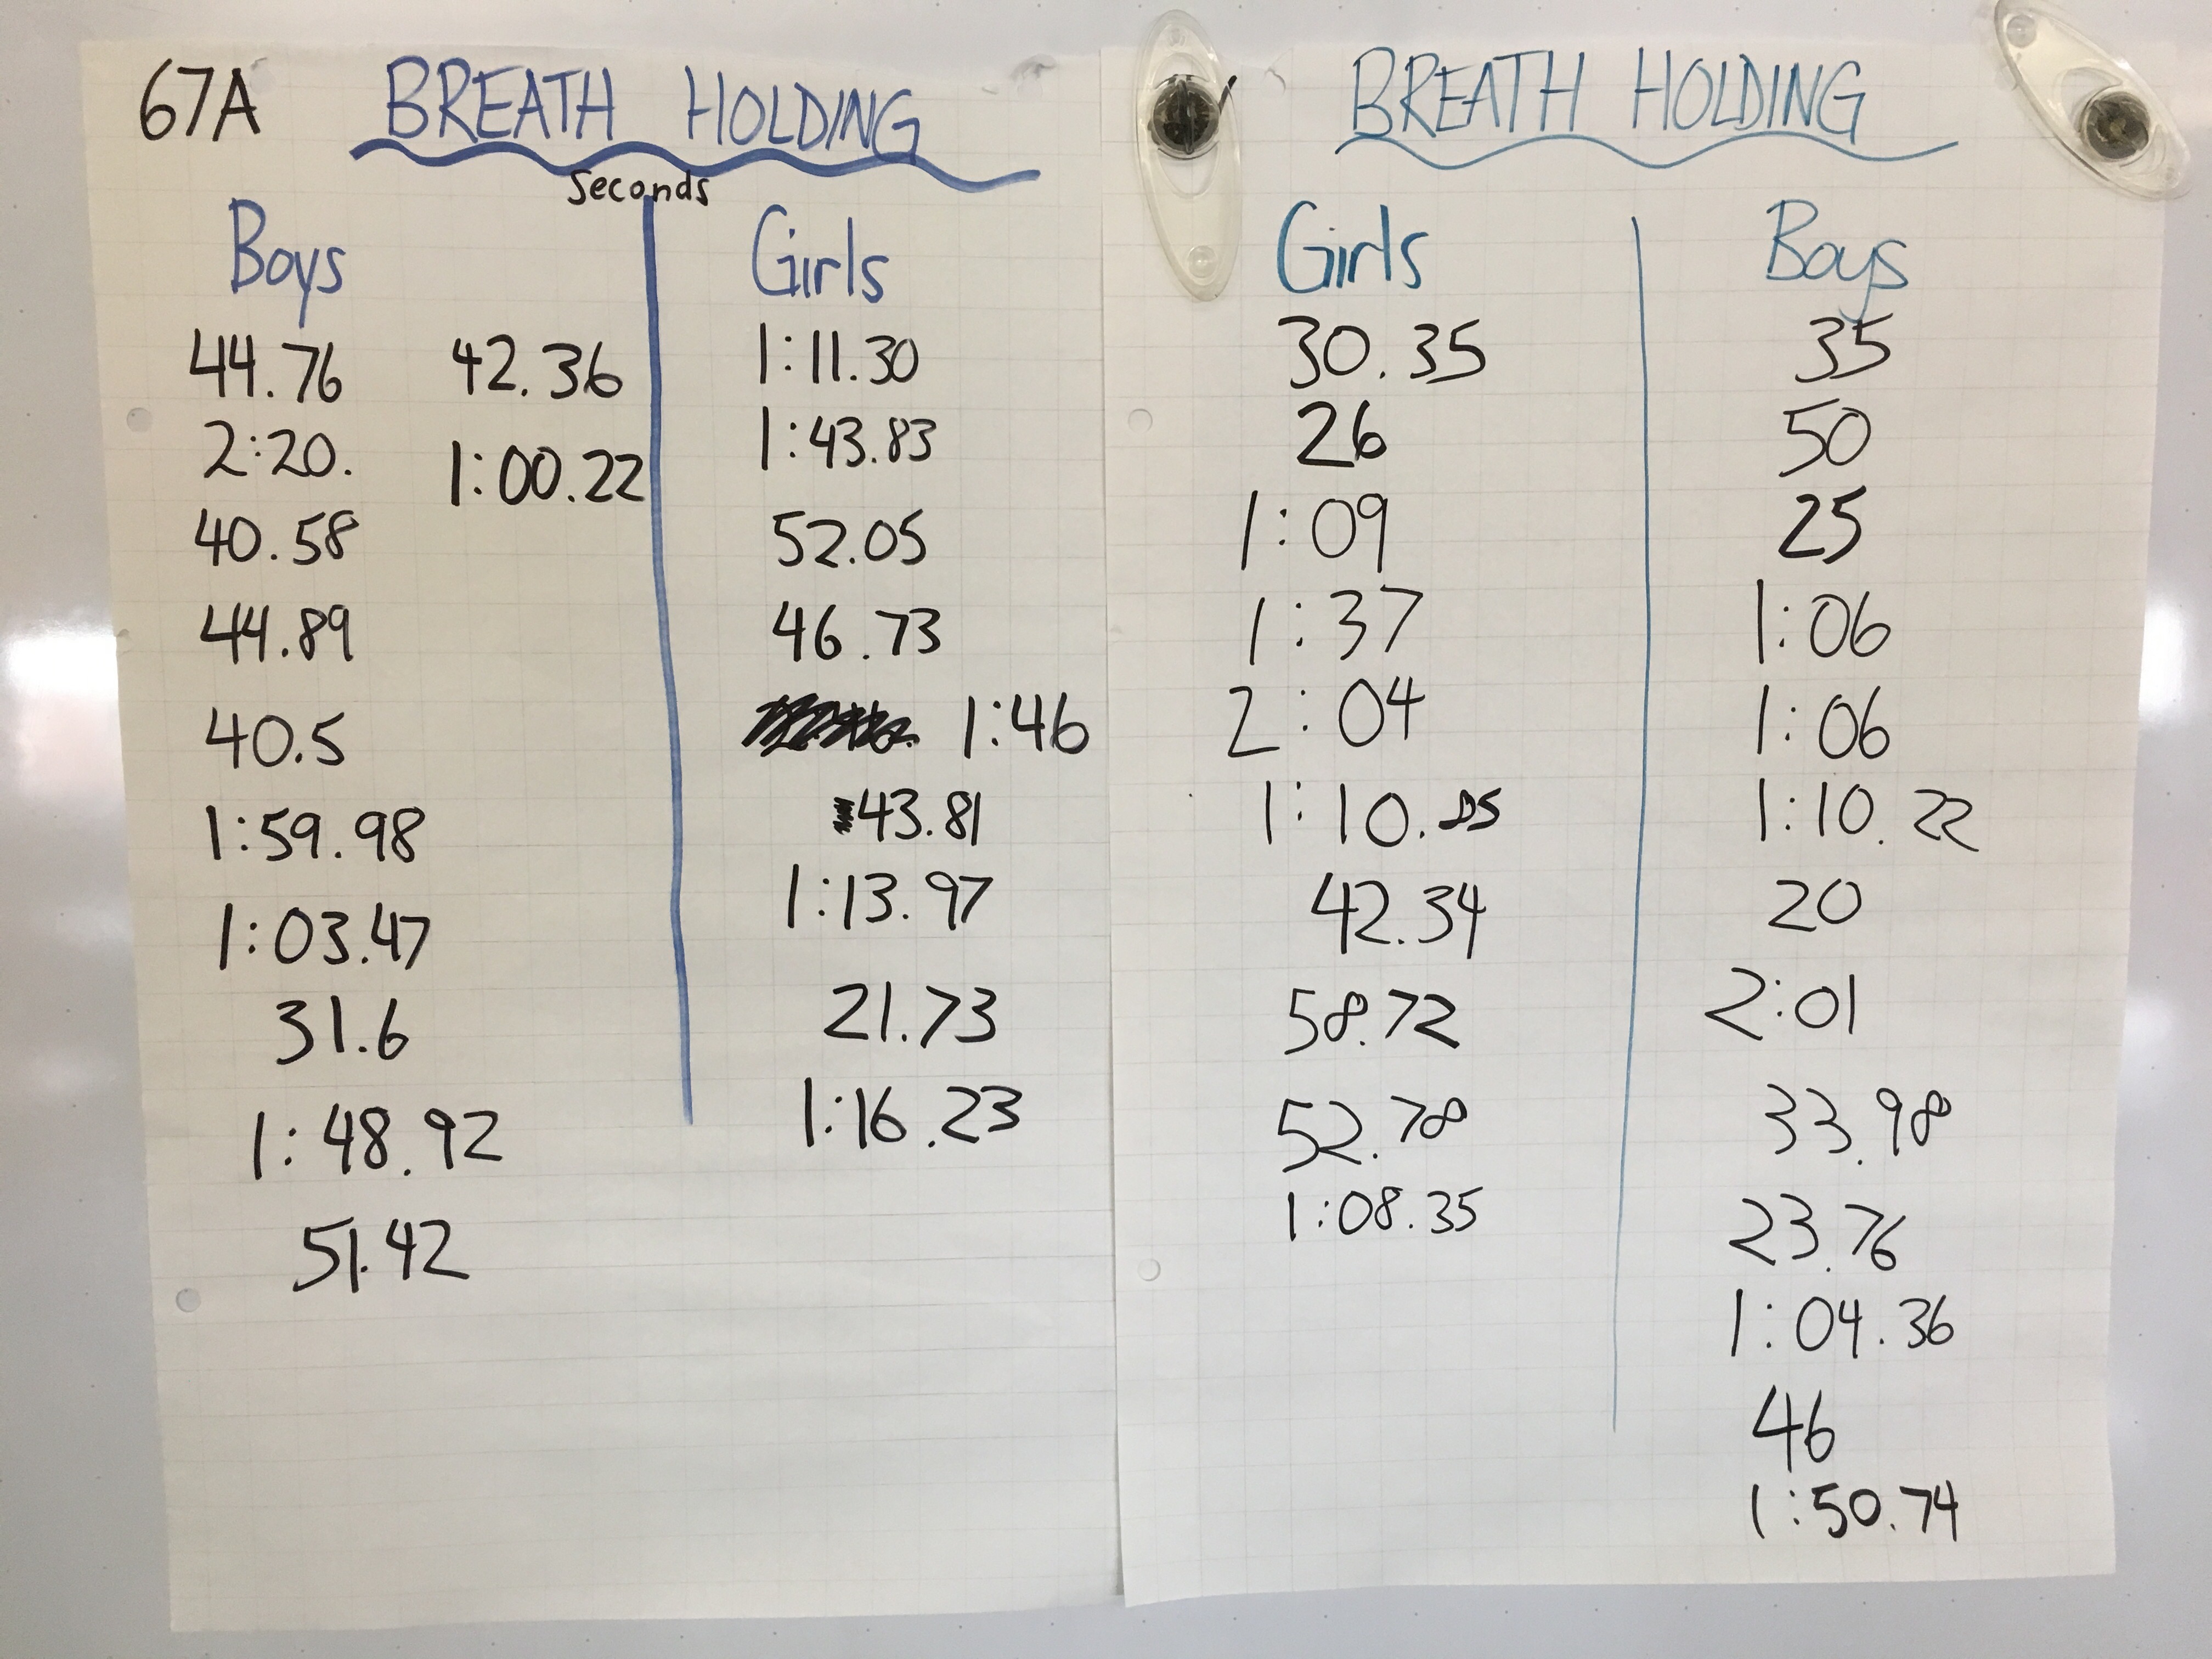 67A BREATH HOLDING
Seconds
Boys Girls
44.76 42.36 1:11.30
2:20. 1:00.22 1:43.83
40.58 52.05
44.89 46.73
40.5 1:46
1:59.98 43.81
1:03.47 1:13.97
31.6 21.73
1:48.92 1:16.23
51.42
BREATH HOLDING
Girls Boys
30.35 35
26 50
1:09 25
1:37 1:06
2:04 1:06
1:10. 1:10.22
42.34 20
58.72 2:01
52.78 33.98
1:08.35 23.76
1:04.36
46
1:50.74